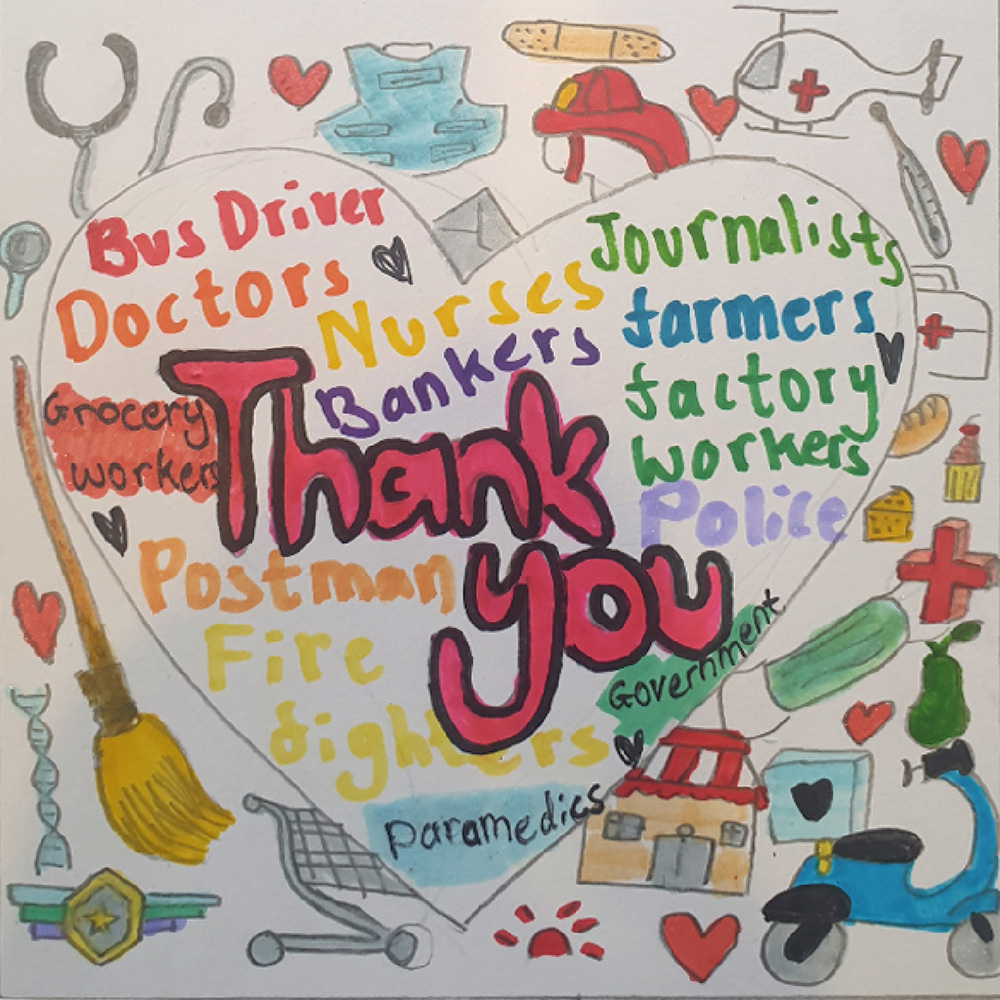 Bus Driver
Journalists
Doctors
Nurses
farmers
Bankers
factory
workers
Grocery
workers
Thank
you
Police
Postman
Fire
fighters
Government
Paramedics